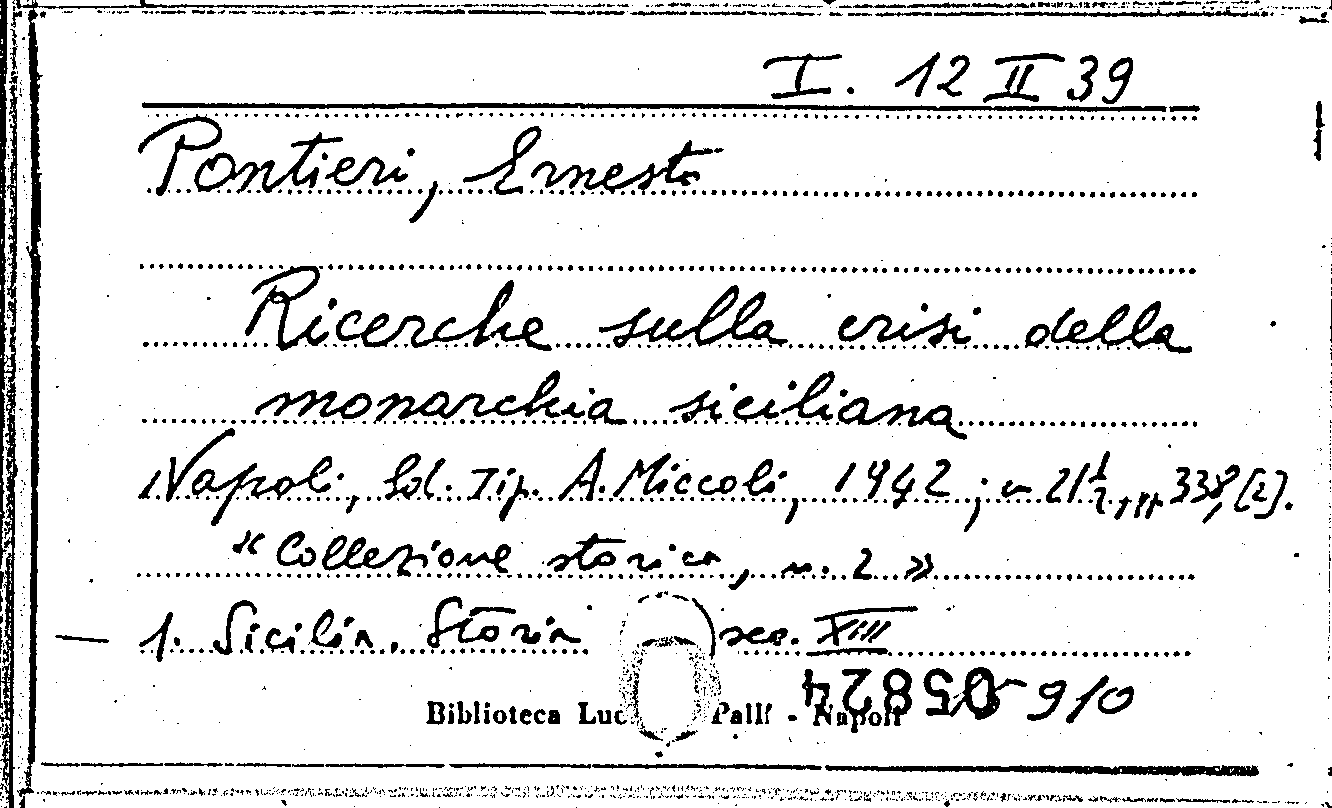 I. 12 II 39
Pontieri, Ernesto
Ricerche sulla crisi della
monarchia siciliana
Napoli, Ed. Tip. A. Miccoli, 1942; in 21 1/2, pp. 338, [2].
« Collezione storica, n. 2 »
1. Sicilia. Storia sec. XIII
05824
910
Biblioteca Luc Palli - Napoli